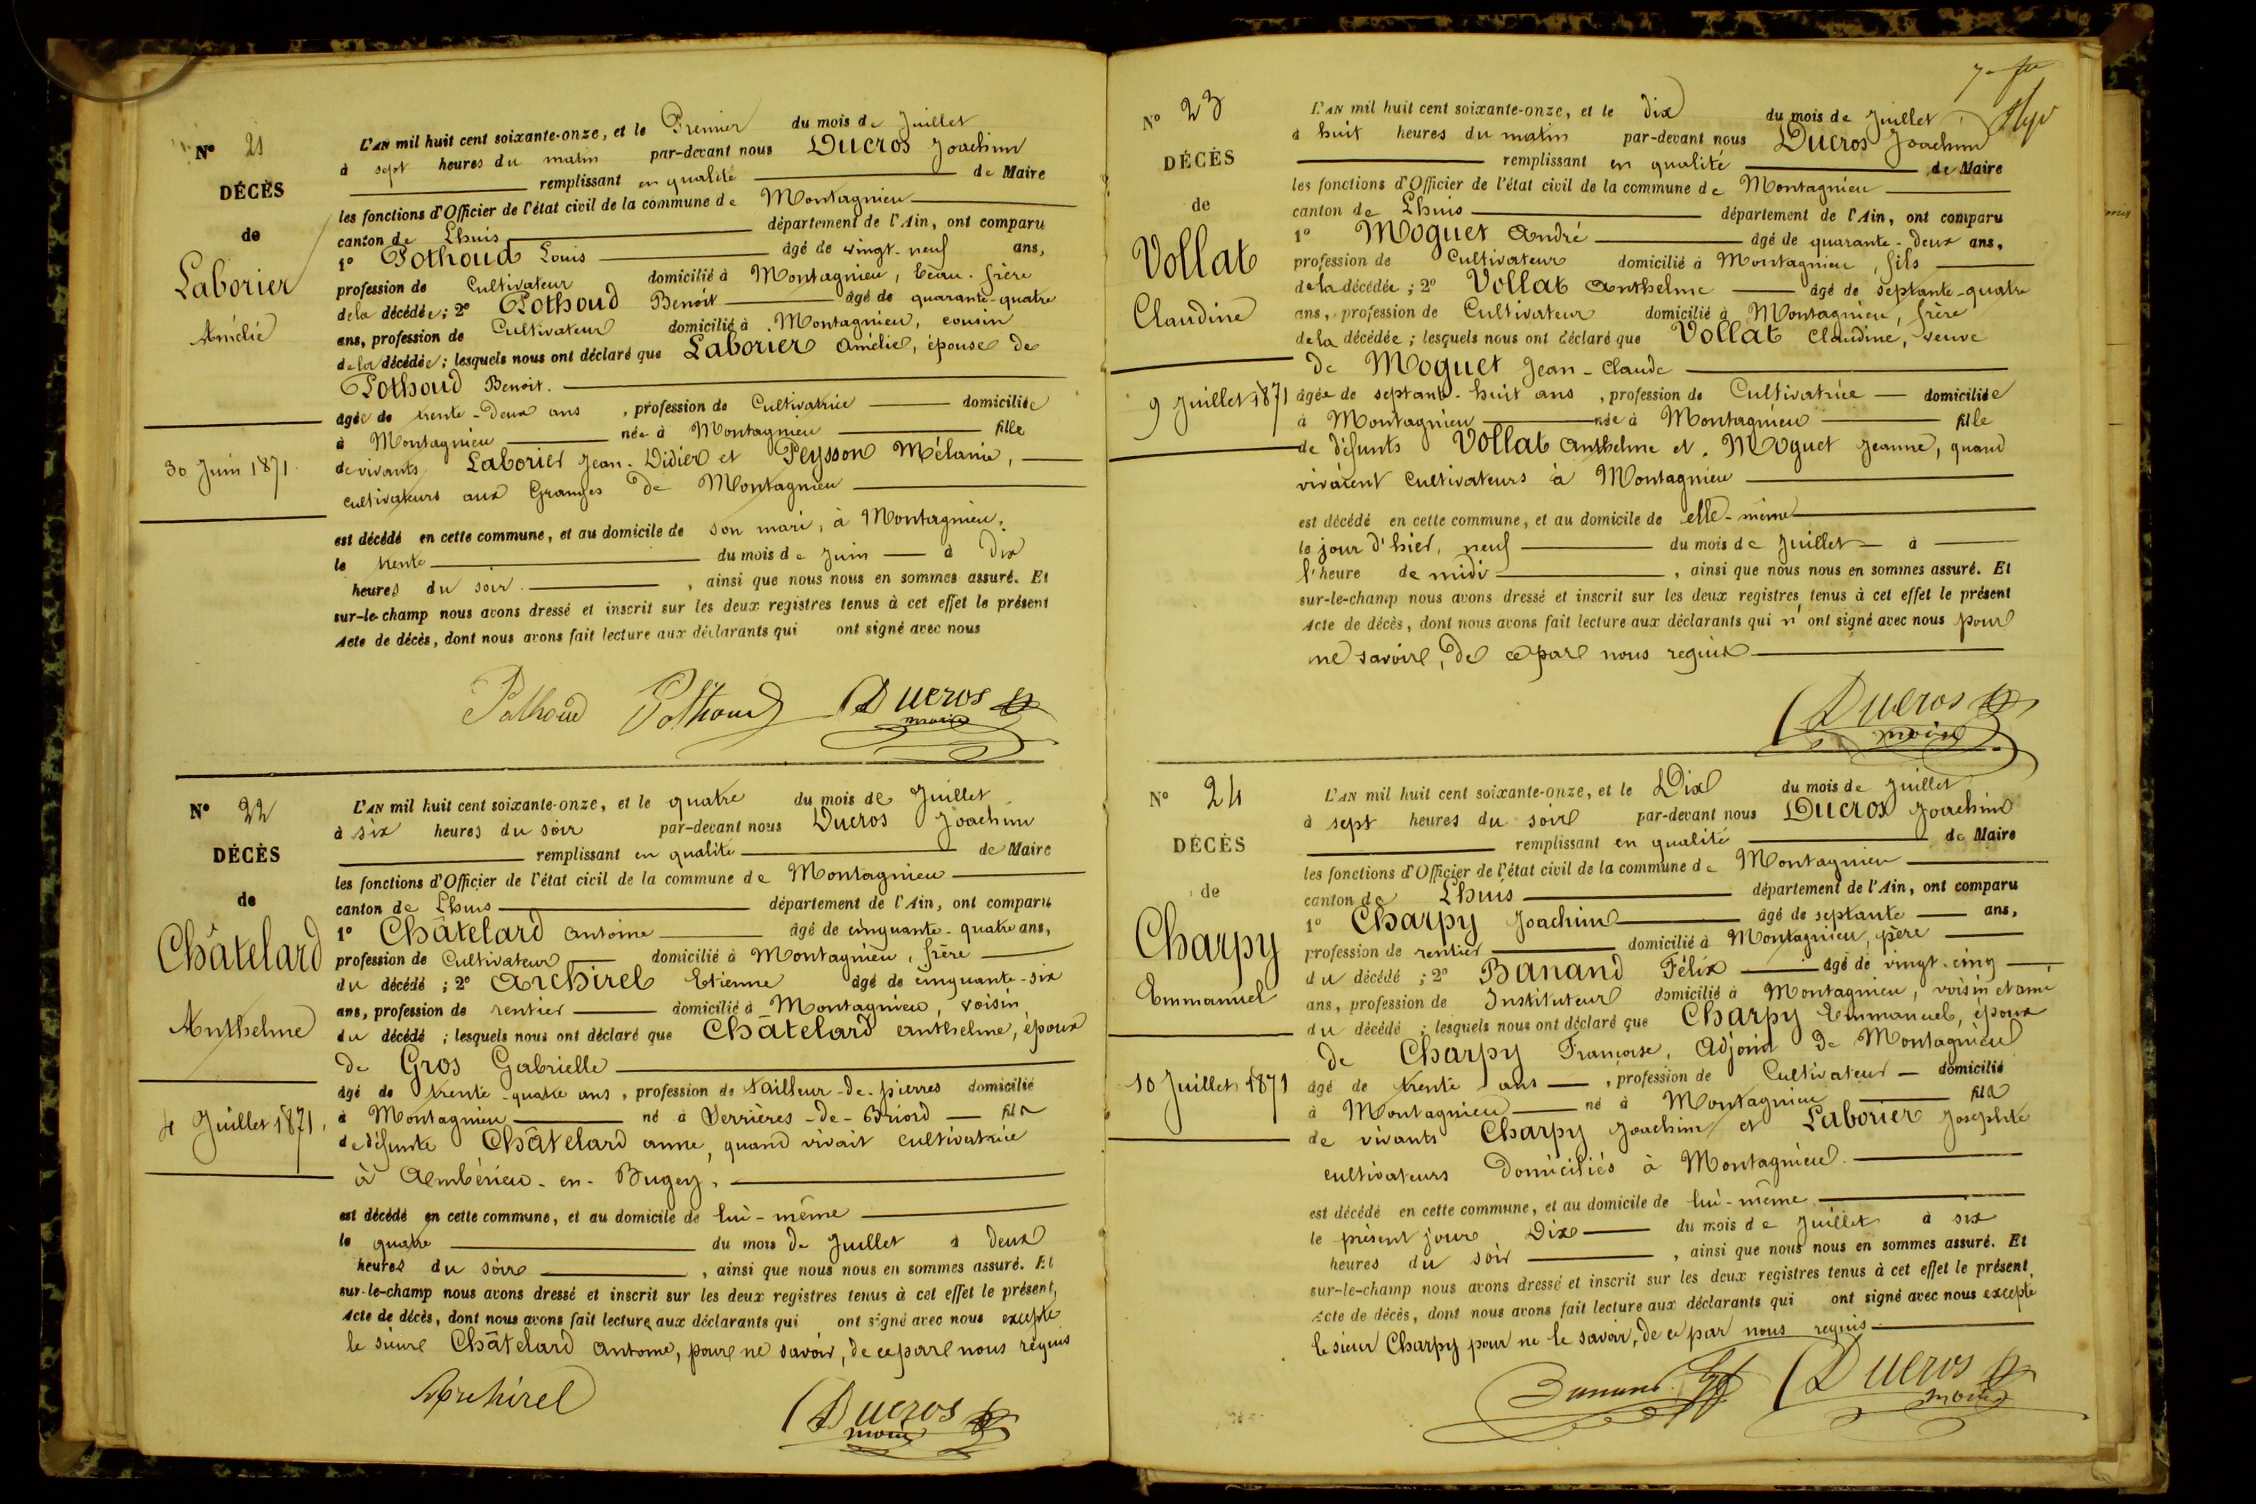 N° 21
DÉCÈS
de
Laborier
Amélie
30 Juin 1871.
L'AN mil huit cent soixante-onze, et le Premier du mois de Juillet
à sept heures du matin par-devant nous Ducros Joachim
remplissant en qualité de Maire
les fonctions d'Officier de l'état civil de la commune de Montagnieu
canton de Lhuis département de l'Ain, ont comparu
1° Pothoud Louis âgé de vingt-neuf ans,
profession de Cultivateur domicilié à Montagnieu, beau-frère
de la décédée; 2° Pothoud Benoit âgé de quarante-quatre
ans, profession de Cultivateur domicilié à Montagnieu, cousin
de la décédée; lesquels nous ont déclaré que Laborier Amélie, épouse de
Pothoud Benoit.
âgée de trente-deux ans, profession de Cultivatrice domiciliée
à Montagnieu née à Montagnieu fille
de vivants Laborier Jean-Didier et Peysson Mélanie,
cultivateurs aux Granges de Montagnieu
est décédé en cette commune, et au domicile de son mari, à Montagnieu,
le trente du mois de Juin à Dix
heures du soir, ainsi que nous nous en sommes assuré. Et
sur-le-champ nous avons dressé et inscrit sur les deux registres tenus à cet effet le présent
Acte de décès, dont nous avons fait lecture aux déclarants qui ont signé avec nous
Pothoud Pothoud Ducros
maire
N° 22
DÉCÈS
de
Châtelard
Anthelme
4 Juillet 1871.
L'AN mil huit cent soixante-onze, et le quatre du mois de Juillet
à six heures du soir par-devant nous Ducros Joachim
remplissant en qualité de Maire
les fonctions d'Officier de l'état civil de la commune de Montagnieu
canton de Lhuis département de l'Ain, ont comparu
1° Châtelard Antoine âgé de cinquante-quatre ans,
profession de Cultivateur domicilié à Montagnieu, frère
du décédé; 2° Archirel Etienne âgé de cinquante-six
ans, profession de rentier domicilié à Montagnieu, voisin
du décédé; lesquels nous ont déclaré que Châtelard Anthelme, époux
de Gros Gabrielle
âgé de trente-quatre ans, profession de tailleur-de-pierres domicilié
à Montagnieu né à Serrières-de-Briord fils
de défunte Châtelard Anne, quand vivait cultivatrice
à Ambérieu-en-Bugey.
est décédé en cette commune, et au domicile de lui-même
le quatre du mois de Juillet à deux
heures du soir, ainsi que nous nous en sommes assuré. Et
sur-le-champ nous avons dressé et inscrit sur les deux registres tenus à cet effet le présent,
Acte de décès, dont nous avons fait lecture aux déclarants qui ont signé avec nous excepté
le sieur Châtelard Antoine, pour ne savoir, de ce par nous requis
Archirel Ducros
maire
N° 23
DÉCÈS
de
Vollat
Claudine
9 Juillet 1871
L'AN mil huit cent soixante-onze, et le dix du mois de Juillet
à huit heures du matin par-devant nous Ducros Joachim
remplissant en qualité de Maire
les fonctions d'Officier de l'état civil de la commune de Montagnieu
canton de Lhuis département de l'Ain, ont comparu
1° Moguet André âgé de quarante-deux ans,
profession de Cultivateur domicilié à Montagnieu, fils
de la décédée; 2° Vollat Anthelme âgé de septante-quatre
ans, profession de Cultivateur domicilié à Montagnieu, frère
de la décédée; lesquels nous ont déclaré que Vollat Claudine, veuve
de Moguet Jean-Claude
âgée de septante-huit ans, profession de Cultivatrice domiciliée
à Montagnieu née à Montagnieu fille
de défunts Vollat Anthelme et Moguet Jeanne, quand
vivaient cultivateurs à Montagnieu
est décédé en cette commune, et au domicile de elle-même
le jour d'hier, neuf du mois de Juillet à
l'heure de midi, ainsi que nous nous en sommes assuré. Et
sur-le-champ nous avons dressé et inscrit sur les deux registres tenus à cet effet le présent
Acte de décès, dont nous avons fait lecture aux déclarants qui n'ont signé avec nous pour
ne savoir, de ce par nous requis
Ducros
maire
N° 24
DÉCÈS
de
Charpy
Emmanuel
10 Juillet 1871
L'AN mil huit cent soixante-onze, et le Dix du mois de Juillet
à sept heures du soir par-devant nous Ducros Joachim
remplissant en qualité de Maire
les fonctions d'Officier de l'état civil de la commune de Montagnieu
canton de Lhuis département de l'Ain, ont comparu
1° Charpy Joachim âgé de septante ans,
profession de rentier domicilié à Montagnieu, père
du décédé; 2° Banand Félix âgé de vingt-cinq
ans, profession de Instituteur domicilié à Montagnieu, voisin et ami
du décédé; lesquels nous ont déclaré que Charpy Emmanuel, époux
de Charpy Françoise, Adjoint de Montagnieu
âgé de trente ans, profession de Cultivateur domicilié
à Montagnieu né à Montagnieu fils
de vivants Charpy Joachim et Laborier Josephte
cultivateurs domiciliés à Montagnieu.
est décédé en cette commune, et au domicile de lui-même
le présent jour Dix du mois de Juillet à six
heures du soir, ainsi que nous nous en sommes assuré. Et
sur-le-champ nous avons dressé et inscrit sur les deux registres tenus à cet effet le présent
Acte de décès, dont nous avons fait lecture aux déclarants qui ont signé avec nous excepté
le sieur Charpy pour ne le savoir, de ce par nous requis
Banand Ducros
maire